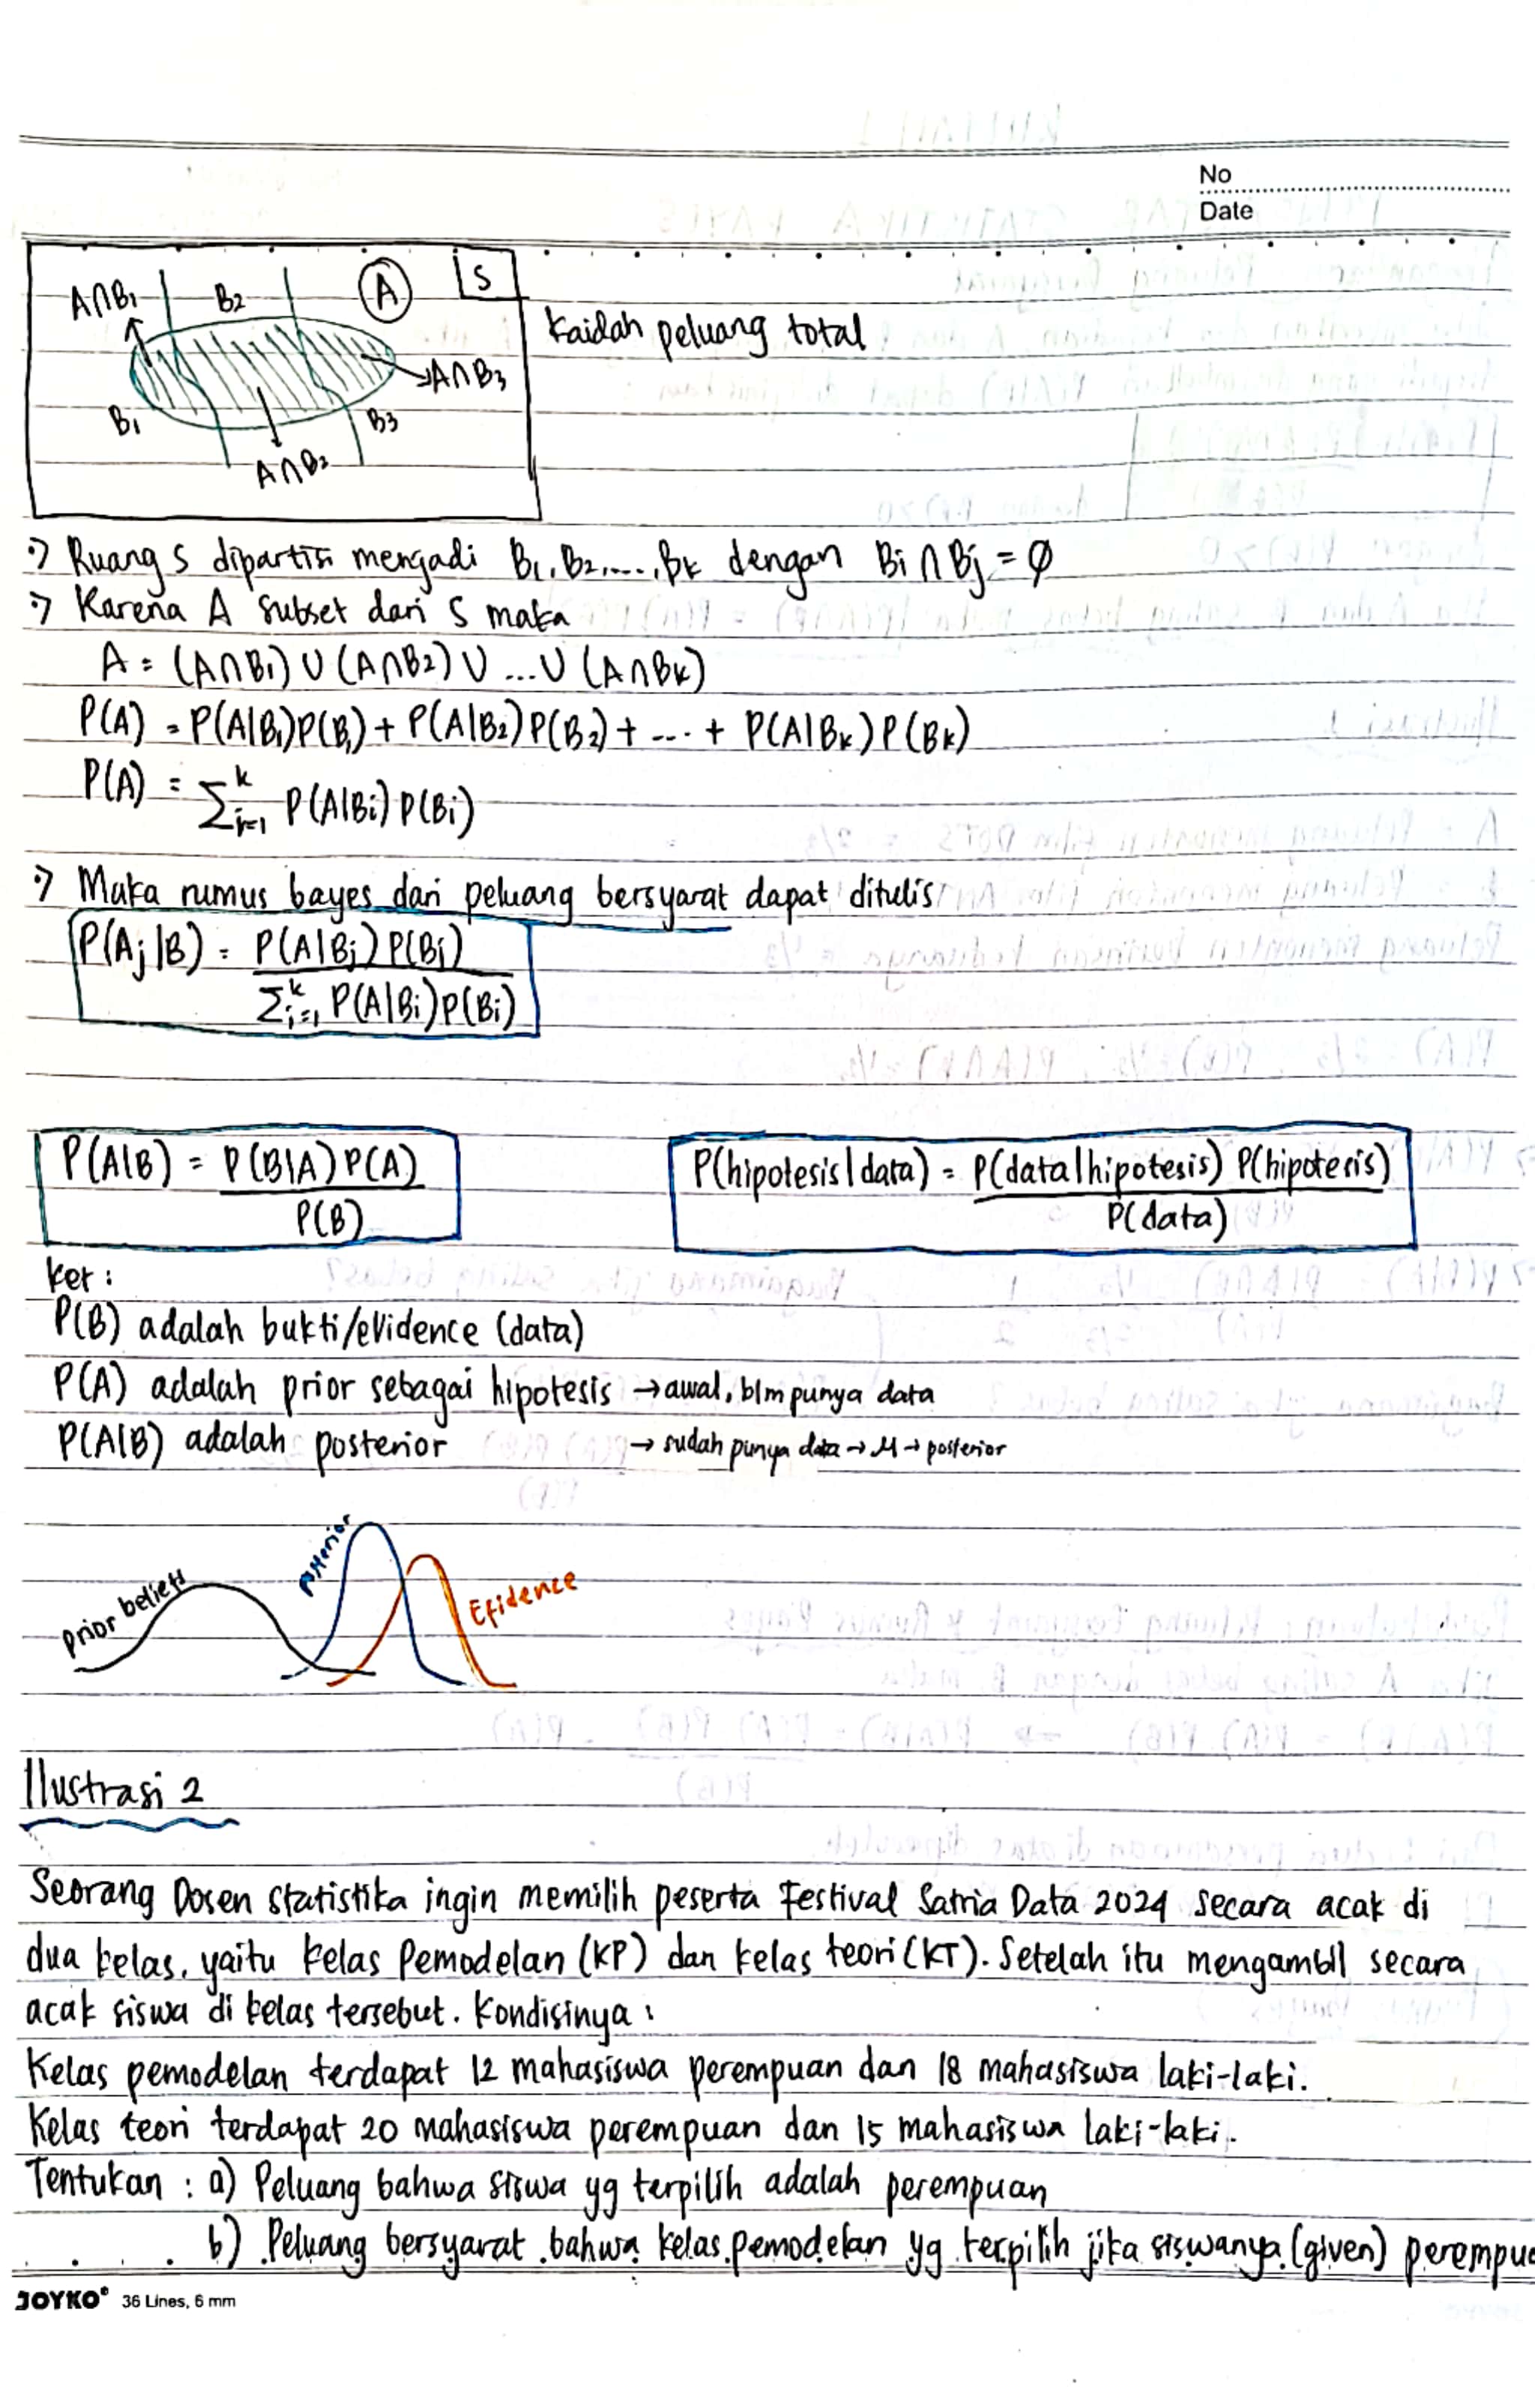 No
Date
A∩B₁ B₂ A S
Kaidah peluang total
→A∩B₃
B₁ B₃
A∩B₂
Ruang S dipartisi menjadi B₁, B₂, ..., Bk dengan Bi ∩ Bj = ∅
Karena A subset dari S maka
A = (A∩B₁) ∪ (A∩B₂) ∪ ... ∪ (A∩Bk)
P(A) = P(A|B₁)P(B₁) + P(A|B₂)P(B₂) + ... + P(A|Bk)P(Bk)
P(A) = Σᵏᵢ₌₁ P(A|Bi)P(Bi)
Maka rumus bayes dari peluang bersyarat dapat ditulis
P(Aj|B) = P(A|Bj) P(Bj)
Σᵏᵢ₌₁ P(A|Bi)P(Bi)
P(A|B) = P(B|A) P(A)
P(B)
P(hipotesis|data) = P(data|hipotesis) P(hipotesis)
P(data)
Ket :
P(B) adalah bukti/evidence (data)
P(A) adalah prior sebagai hipotesis → awal, blm punya data
P(A|B) adalah posterior → sudah punya data → → posterior
Prior beliefs posterior Efidence
Ilustrasi 2
Seorang Dosen statistika ingin memilih peserta Festival Satria Data 2024 secara acak di
dua kelas, yaitu kelas Pemodelan (KP) dan kelas teori (KT). Setelah itu mengambil secara
acak siswa di kelas tersebut. Kondisinya :
Kelas pemodelan terdapat 12 mahasiswa perempuan dan 18 mahasiswa laki-laki.
Kelas teori terdapat 20 mahasiswa perempuan dan 15 mahasiswa laki-laki.
Tentukan : a) Peluang bahwa siswa yg terpilih adalah perempuan
b) Peluang bersyarat bahwa kelas pemodelan yg terpilih jika siswanya (given) perempua
JOYKO® 36 Lines, 6 mm